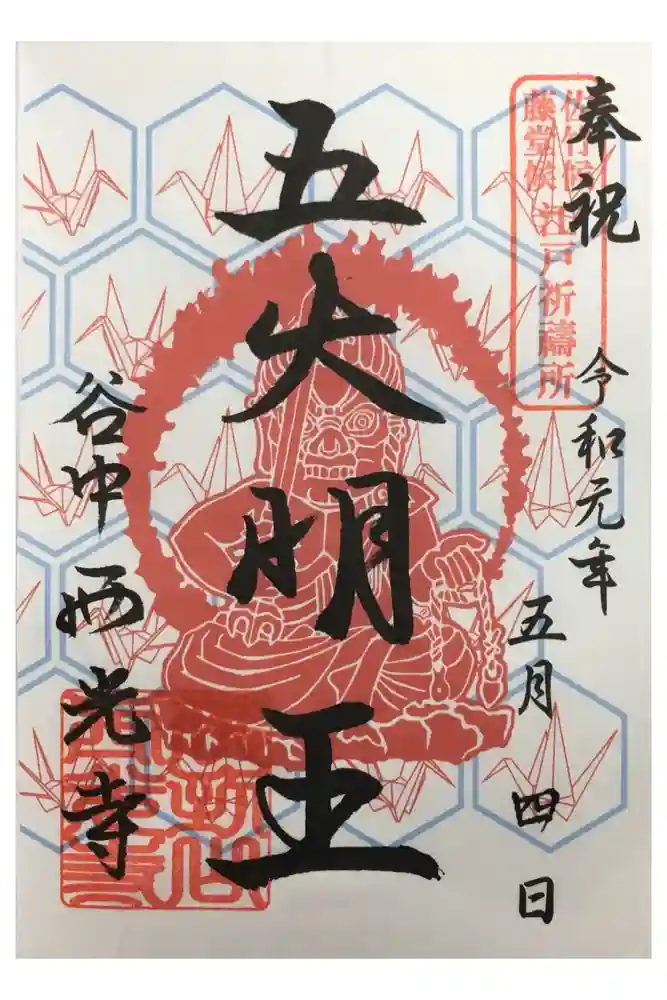 奉祝
令和元年
五月四日
佐竹候
藤堂候
江戸祈禱所
五大明王
谷中西光寺